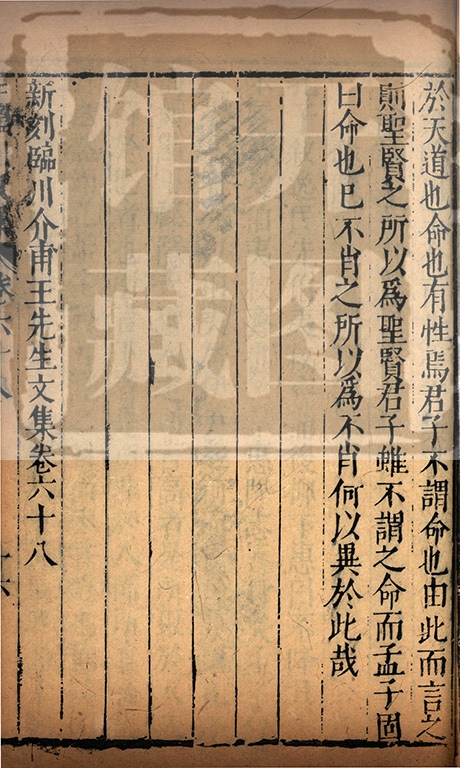 於天道也命也有性焉君子不謂命也由此而言之
則聖賢之所以爲聖賢君子雖不謂之命而孟子固
曰命也已不肖之所以爲不肖何以異於此哉
新刻臨川介甫王先生文集卷六十八